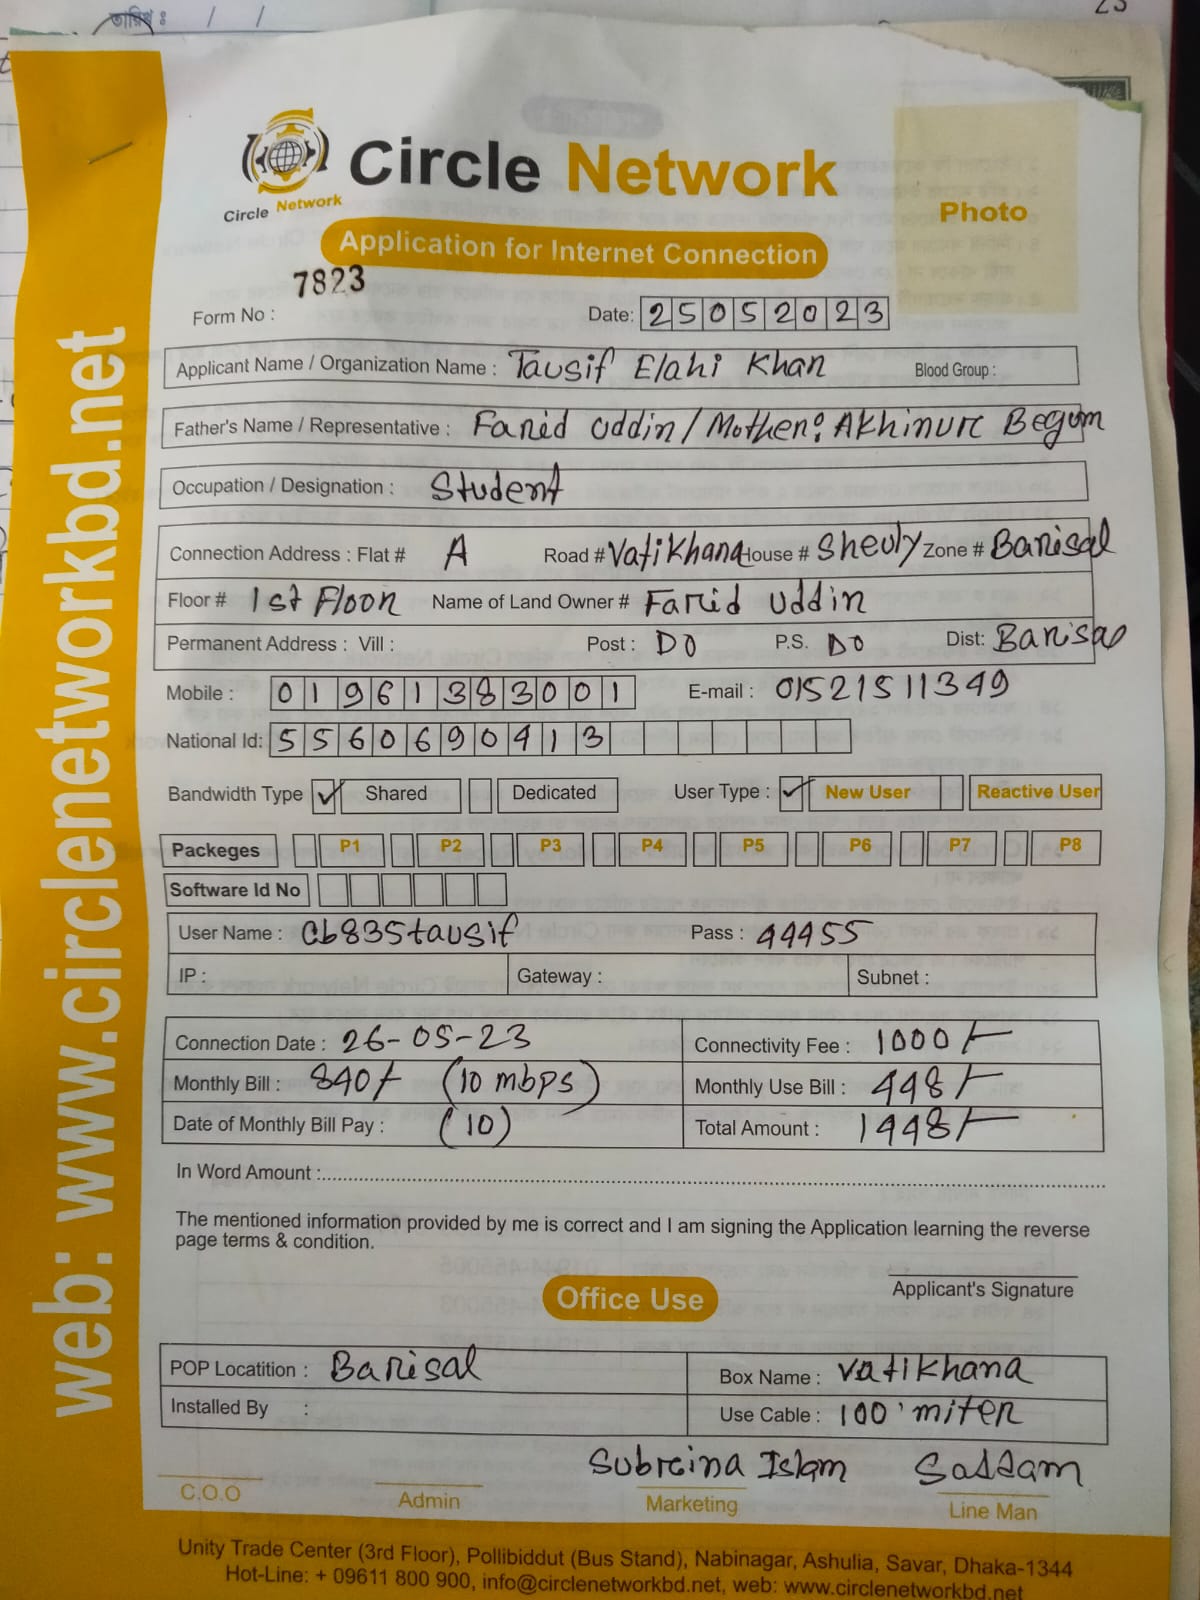 তারিখ : / /
23
Circle Network
Circle Network
Photo
Application for Internet Connection
7823
Form No : Date: 25052023
Applicant Name / Organization Name : Tausif Elahi Khan Blood Group :
Father's Name / Representative : Farid Uddin / Mother: Akhinur Begum
Occupation / Designation : Student
Connection Address : Flat # A Road # Vatikhana House # Sheuly Zone # Barisal
Floor # 1st Floor Name of Land Owner # Farid Uddin
Permanent Address : Vill : Post : DO P.S. DO Dist: Barisal
Mobile : 01961383001 E-mail : 01521511349
National Id: 5560690413
Bandwidth Type ✓ Shared Dedicated User Type : ✓ New User Reactive User
Packeges P1 P2 P3 P4 P5 P6 P7 P8
Software Id No
User Name : cb835tausif Pass : 44455
IP : Gateway : Subnet :
Connection Date : 26-05-23 Connectivity Fee : 1000/-
Monthly Bill : 840/- (10 mbps) Monthly Use Bill : 448/-
Date of Monthly Bill Pay : (10) Total Amount : 1448/-
In Word Amount :
The mentioned information provided by me is correct and I am signing the Application learning the reverse
page terms & condition.
Applicant's Signature
Office Use
POP Locatition : Barisal Box Name : Vatikhana
Installed By : Use Cable : 100' miter
Subrina Islam Saddam
C.O.O Admin Marketing Line Man
Unity Trade Center (3rd Floor), Pollibiddut (Bus Stand), Nabinagar, Ashulia, Savar, Dhaka-1344
Hot-Line: + 09611 800 900, info@circlenetworkbd.net, web: www.circlenetworkbd.net
web: www.circlenetworkbd.net